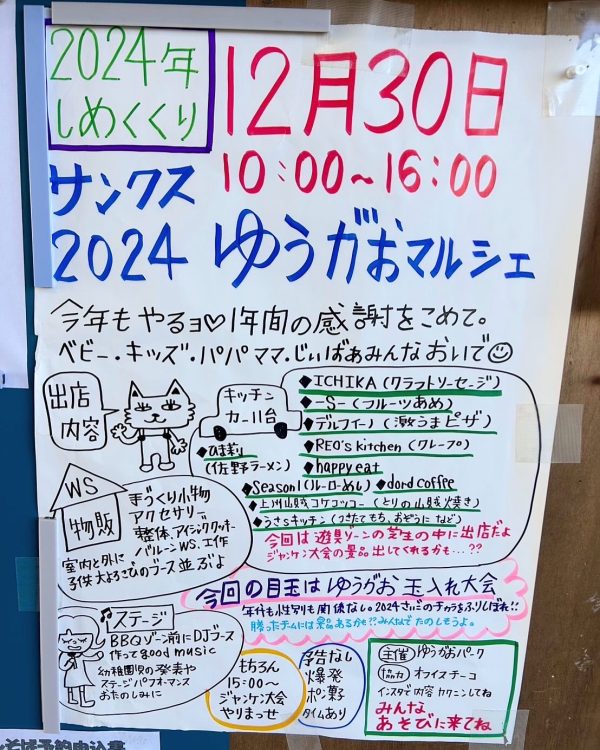 2024年
しめくくり
12月30日
10:00～16:00
サンクス
2024 ゆうがおマルシェ
今年もやるョ♡1年間の感謝をこめて。
ベビー・キッズ・パパママ・じぃばぁみんなおいで☺
出店
内容
キッチン
カー11台
◆ICHIKA(クラフトソーセージ)
◆-S-(フルーツあめ)
◆デルフィーノ(激うまピザ)
◆REO's kitchen(クレープ)
◆ひま莉
(佐野ラーメン)
◆happy eat
◆Season1(ルーローめし) ◆dord coffee
◆上州山賊コケコッコー(とりの山賊焼き)
◆うさSキッチン(つきたてもち、おぞうになど)
今回は遊具ゾーンの芝生の中に出店だよ
ジャンケン大会の景品出してくれるかも…??
WS
物販
手づくり小物
アクセサリー
整体、アイシングクッキー
バルーンWS、工作
室内と外に
子供大よろこびのブース並ぶよ
今回の目玉はゆうがお玉入れ大会
年代も性別も関係なし。2024さいごのチカラをふりしぼれ!!
勝ったチームには景品あるかも??みんなでたのしもう。
ステージ
BBQゾーン前にDJブース
作ってgood music
幼稚園児の発表や
ステージパフォーマンス
おたのしみに
もちろん
15:00～
ジャンケン大会
やりまっせ
予告なし
爆発
ポン菓子
タイムあり
主催 ゆうがおパーク
協力 オフィスチーコ
インスタで内容カクニンしてね
みんな、
あそびに来てね
そば予約申込書